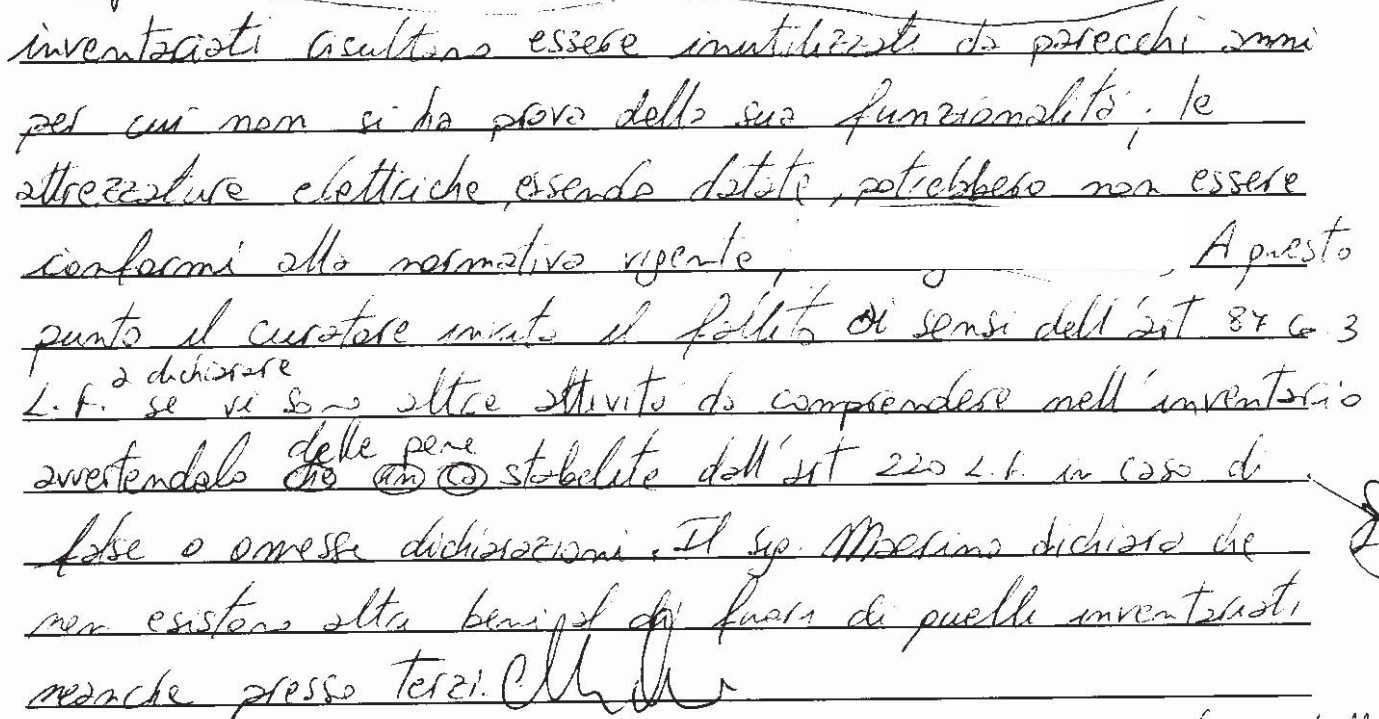 inventariati risultano essere inutilizzati da parecchi anni
per cui non si ha prova della sua funzionalità; le
attrezzature elettriche, essendo datate, potrebbero non essere
conformi alla normativa vigente, A questo
punto il curatore invita il fallito ai sensi dell'art 87 co. 3
a dichiarare
L.F. se vi sono altre attività da comprendere nell'inventario
delle pene
avvertendolo stabilite dall'art 220 L.F. in caso di
false o omesse dichiarazioni. Il sig. dichiara che
non esistono altri beni al di fuori di quelli inventariati
neanche presso terzi.